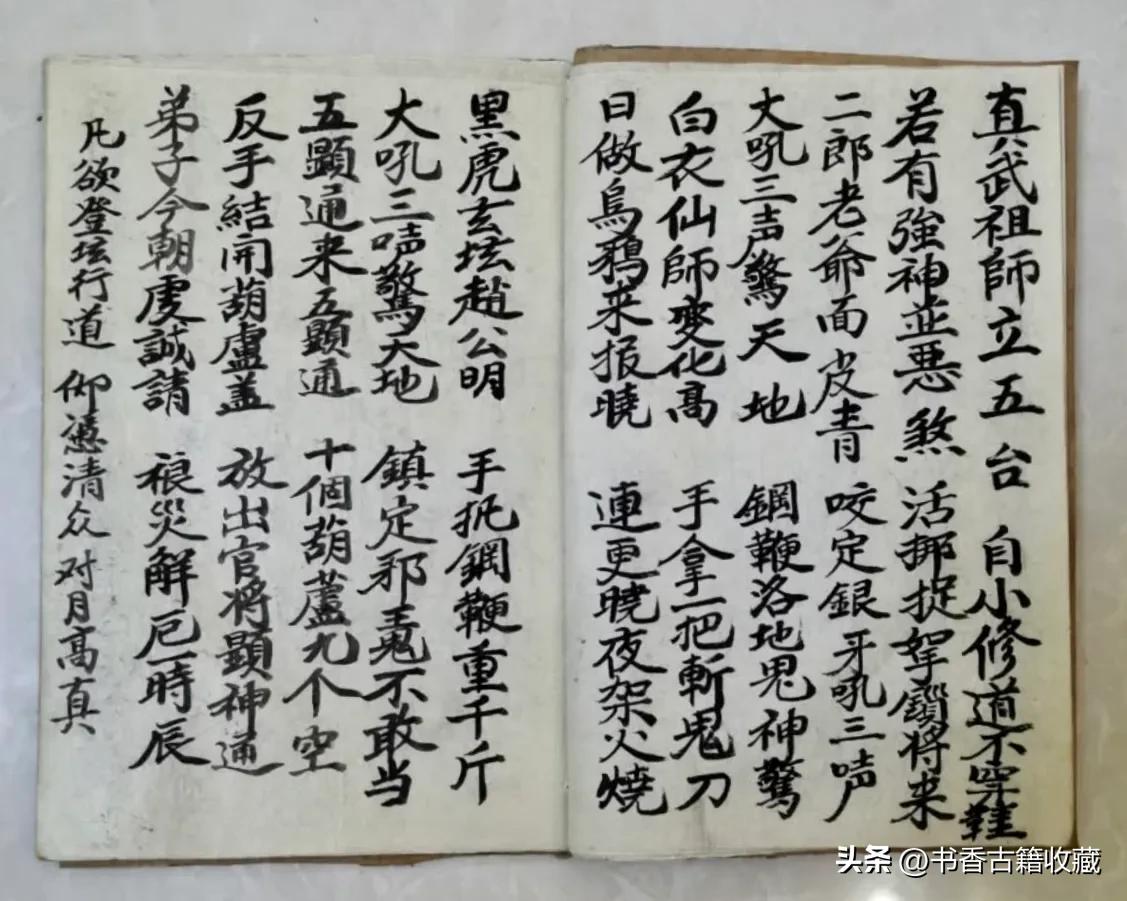 真武祖師立五台 自小修道不穿鞋
若有強神並惡煞 活挪捉拏鎖將来
二郎老爺面皮青 咬定銀牙吼三声
大吼三声驚天地 鋼鞭洛地鬼神驚
白衣仙師变化高 手拿一把斬鬼刀
日做烏鴉来报曉 連更曉夜架火燒
黑虎玄坛趙公明 手扼鋼鞭重千斤
大吼三声驚天地 鎮定邪鬼不敢当
五顯通来五顯通 十個葫蘆九个空
反手結開葫盧盖 放出官将顯神通
弟子今朝虔誠請 禳災解厄一時辰
凡欲登坛行道 仰憑清众对月高真
头条 @书香古籍收藏